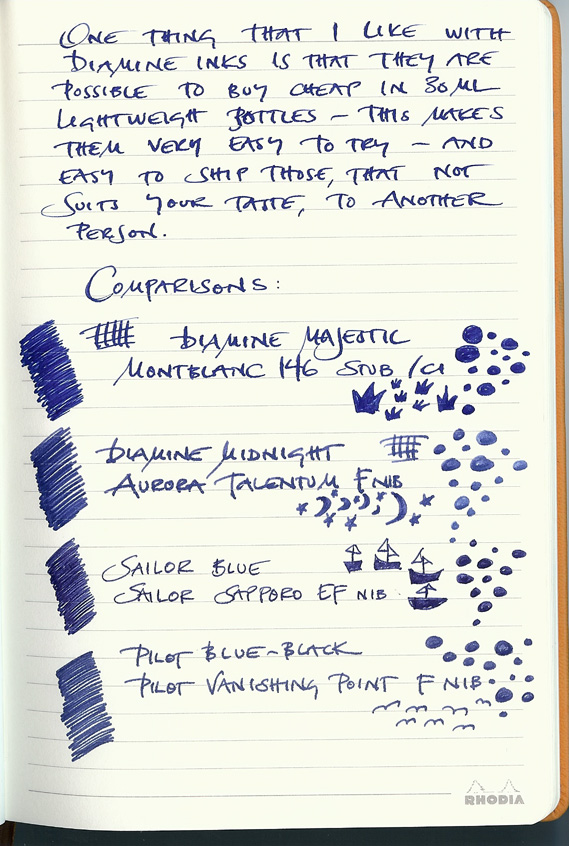 ONE THING THAT I LIKE WITH
DIAMINE INKS IS THAT THEY ARE
POSSIBLE TO BUY CHEAP IN 30 ML
LIGHTWEIGH BOTTLES – THIS MAKES
THEM VERY EASY TO TRY – AND
EASY TO SHIP THOSE, THAT NOT
SUITS YOUR TASTE, TO ANOTHER
PERSON.
COMPARISONS:
DIAMINE MAJESTIC
MONTBLANC 146 STUB /CI
DIAMINE MIDNIGHT
AURORA TALENTUM F NIB
SAILOR BLUE
SAILOR SAPPORO EF NIB
PILOT BLUE-BLACK
PILOT VANISHING POINT F NIB
RHODIA